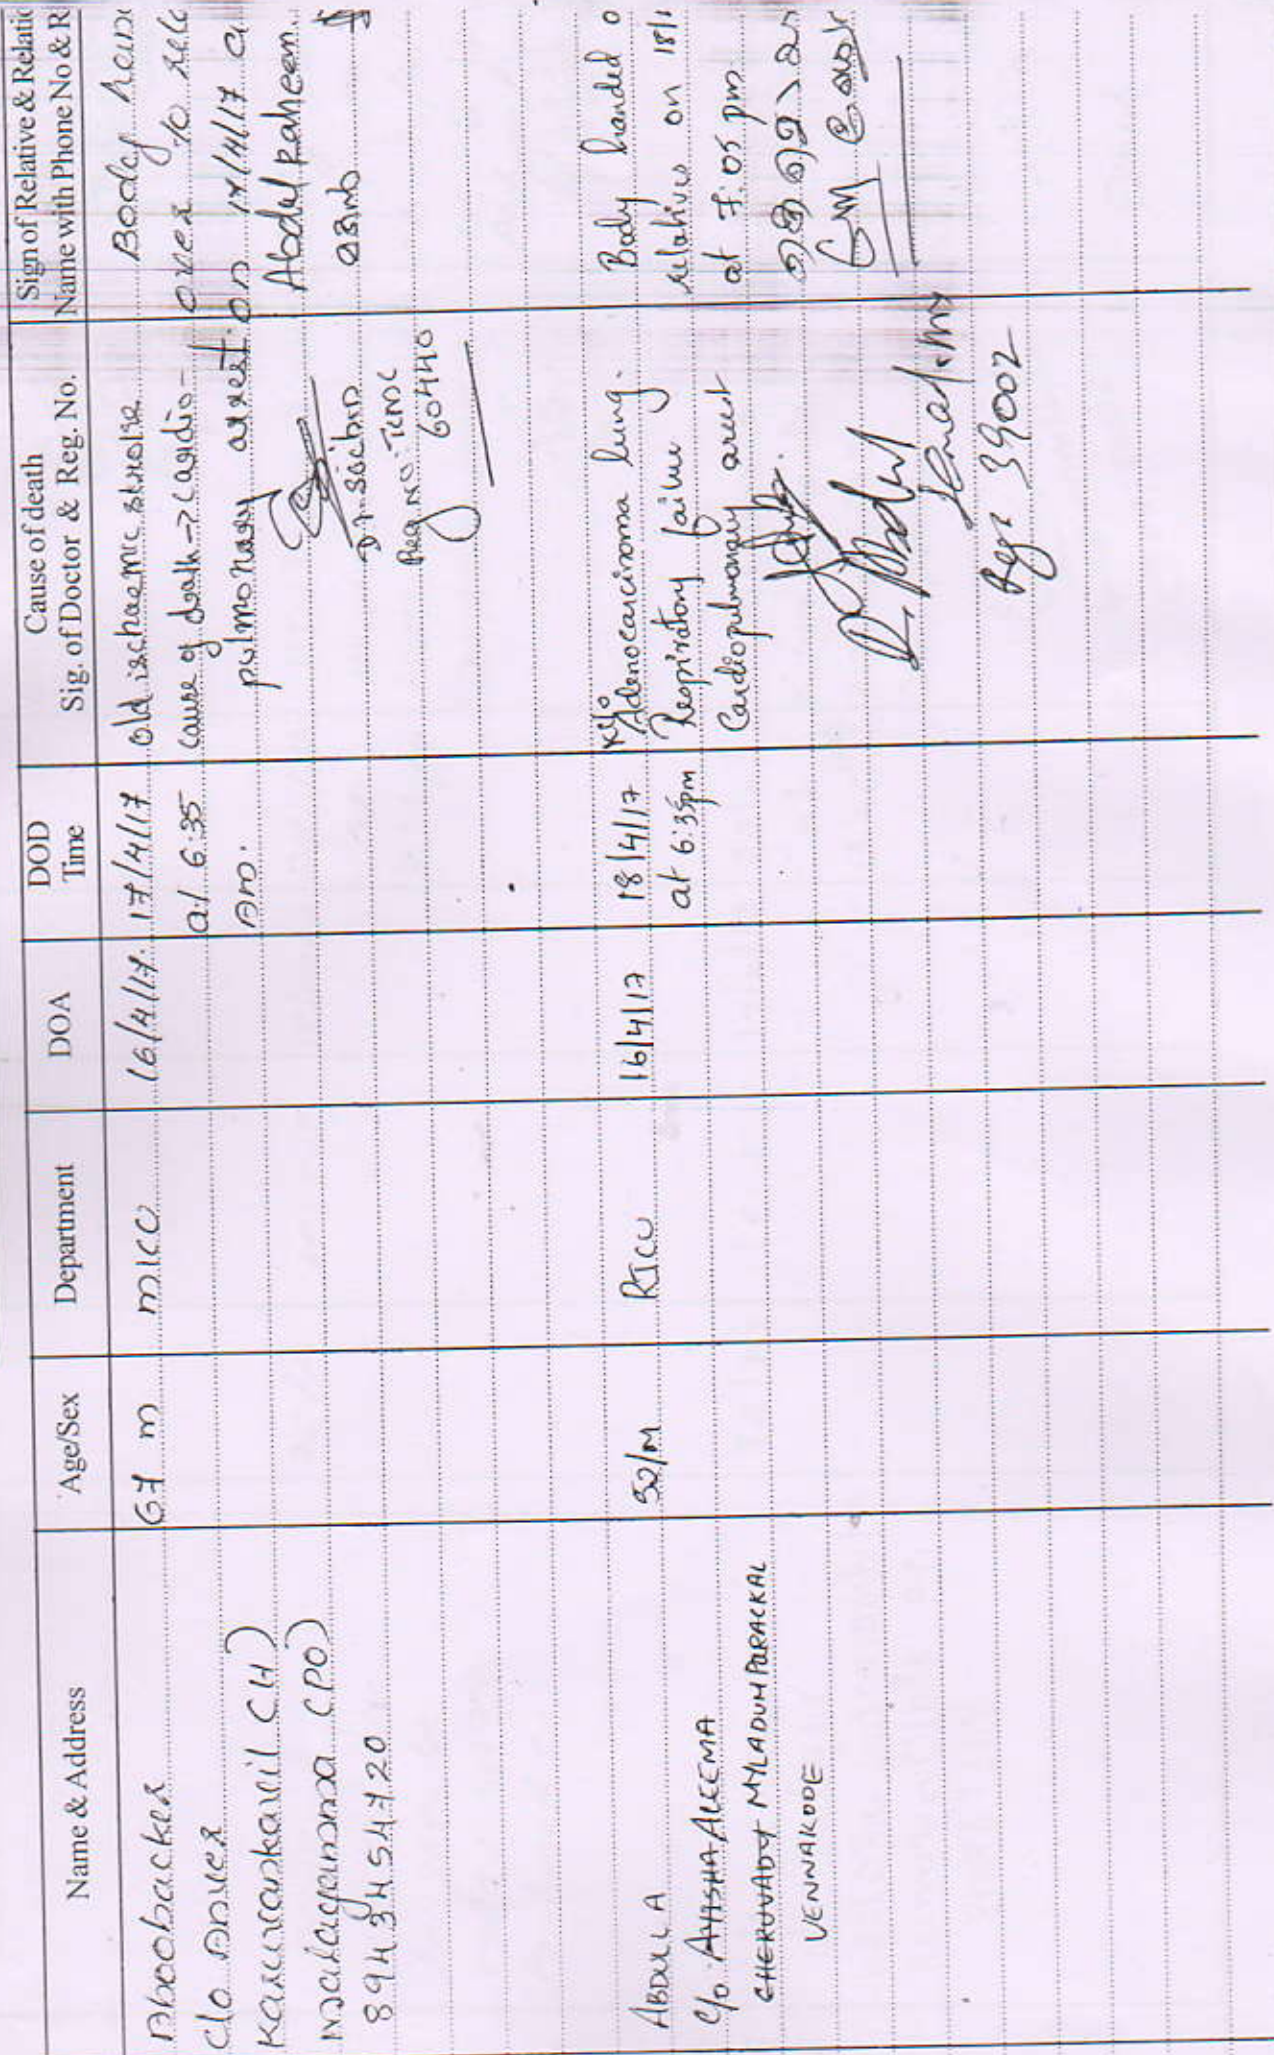 Name & Address
Age/Sex
Department
DOA
DOD
Time
Cause of death
Sig. of Doctor & Reg. No.
Sign of Relative & Relatio
Name with Phone No & R
Aboobacker
C/o Anver
(H)
(PO)
8943454720
67 m
MICU
16/4/17
17/4/17
at 6:35
am.
Old ischaemic stroke
cause of death → cardio-
pulmonary arrest
Reg NO:
60440
Body han
over to rela
on 17/4/17 a
Abdul Raheem
ABDULLA
C/o AYISHA ALEEMA
MYLADUM PARACKAL
VENNAKODE
52/M
RICU
16/4/17
18/4/17
at 6:35pm
K/c/o Adenocarcinoma lung.
Respiratory failure
Cardiopulmonary arrest
39002
Body handed o
relatives on 18/
at 7:05 pm